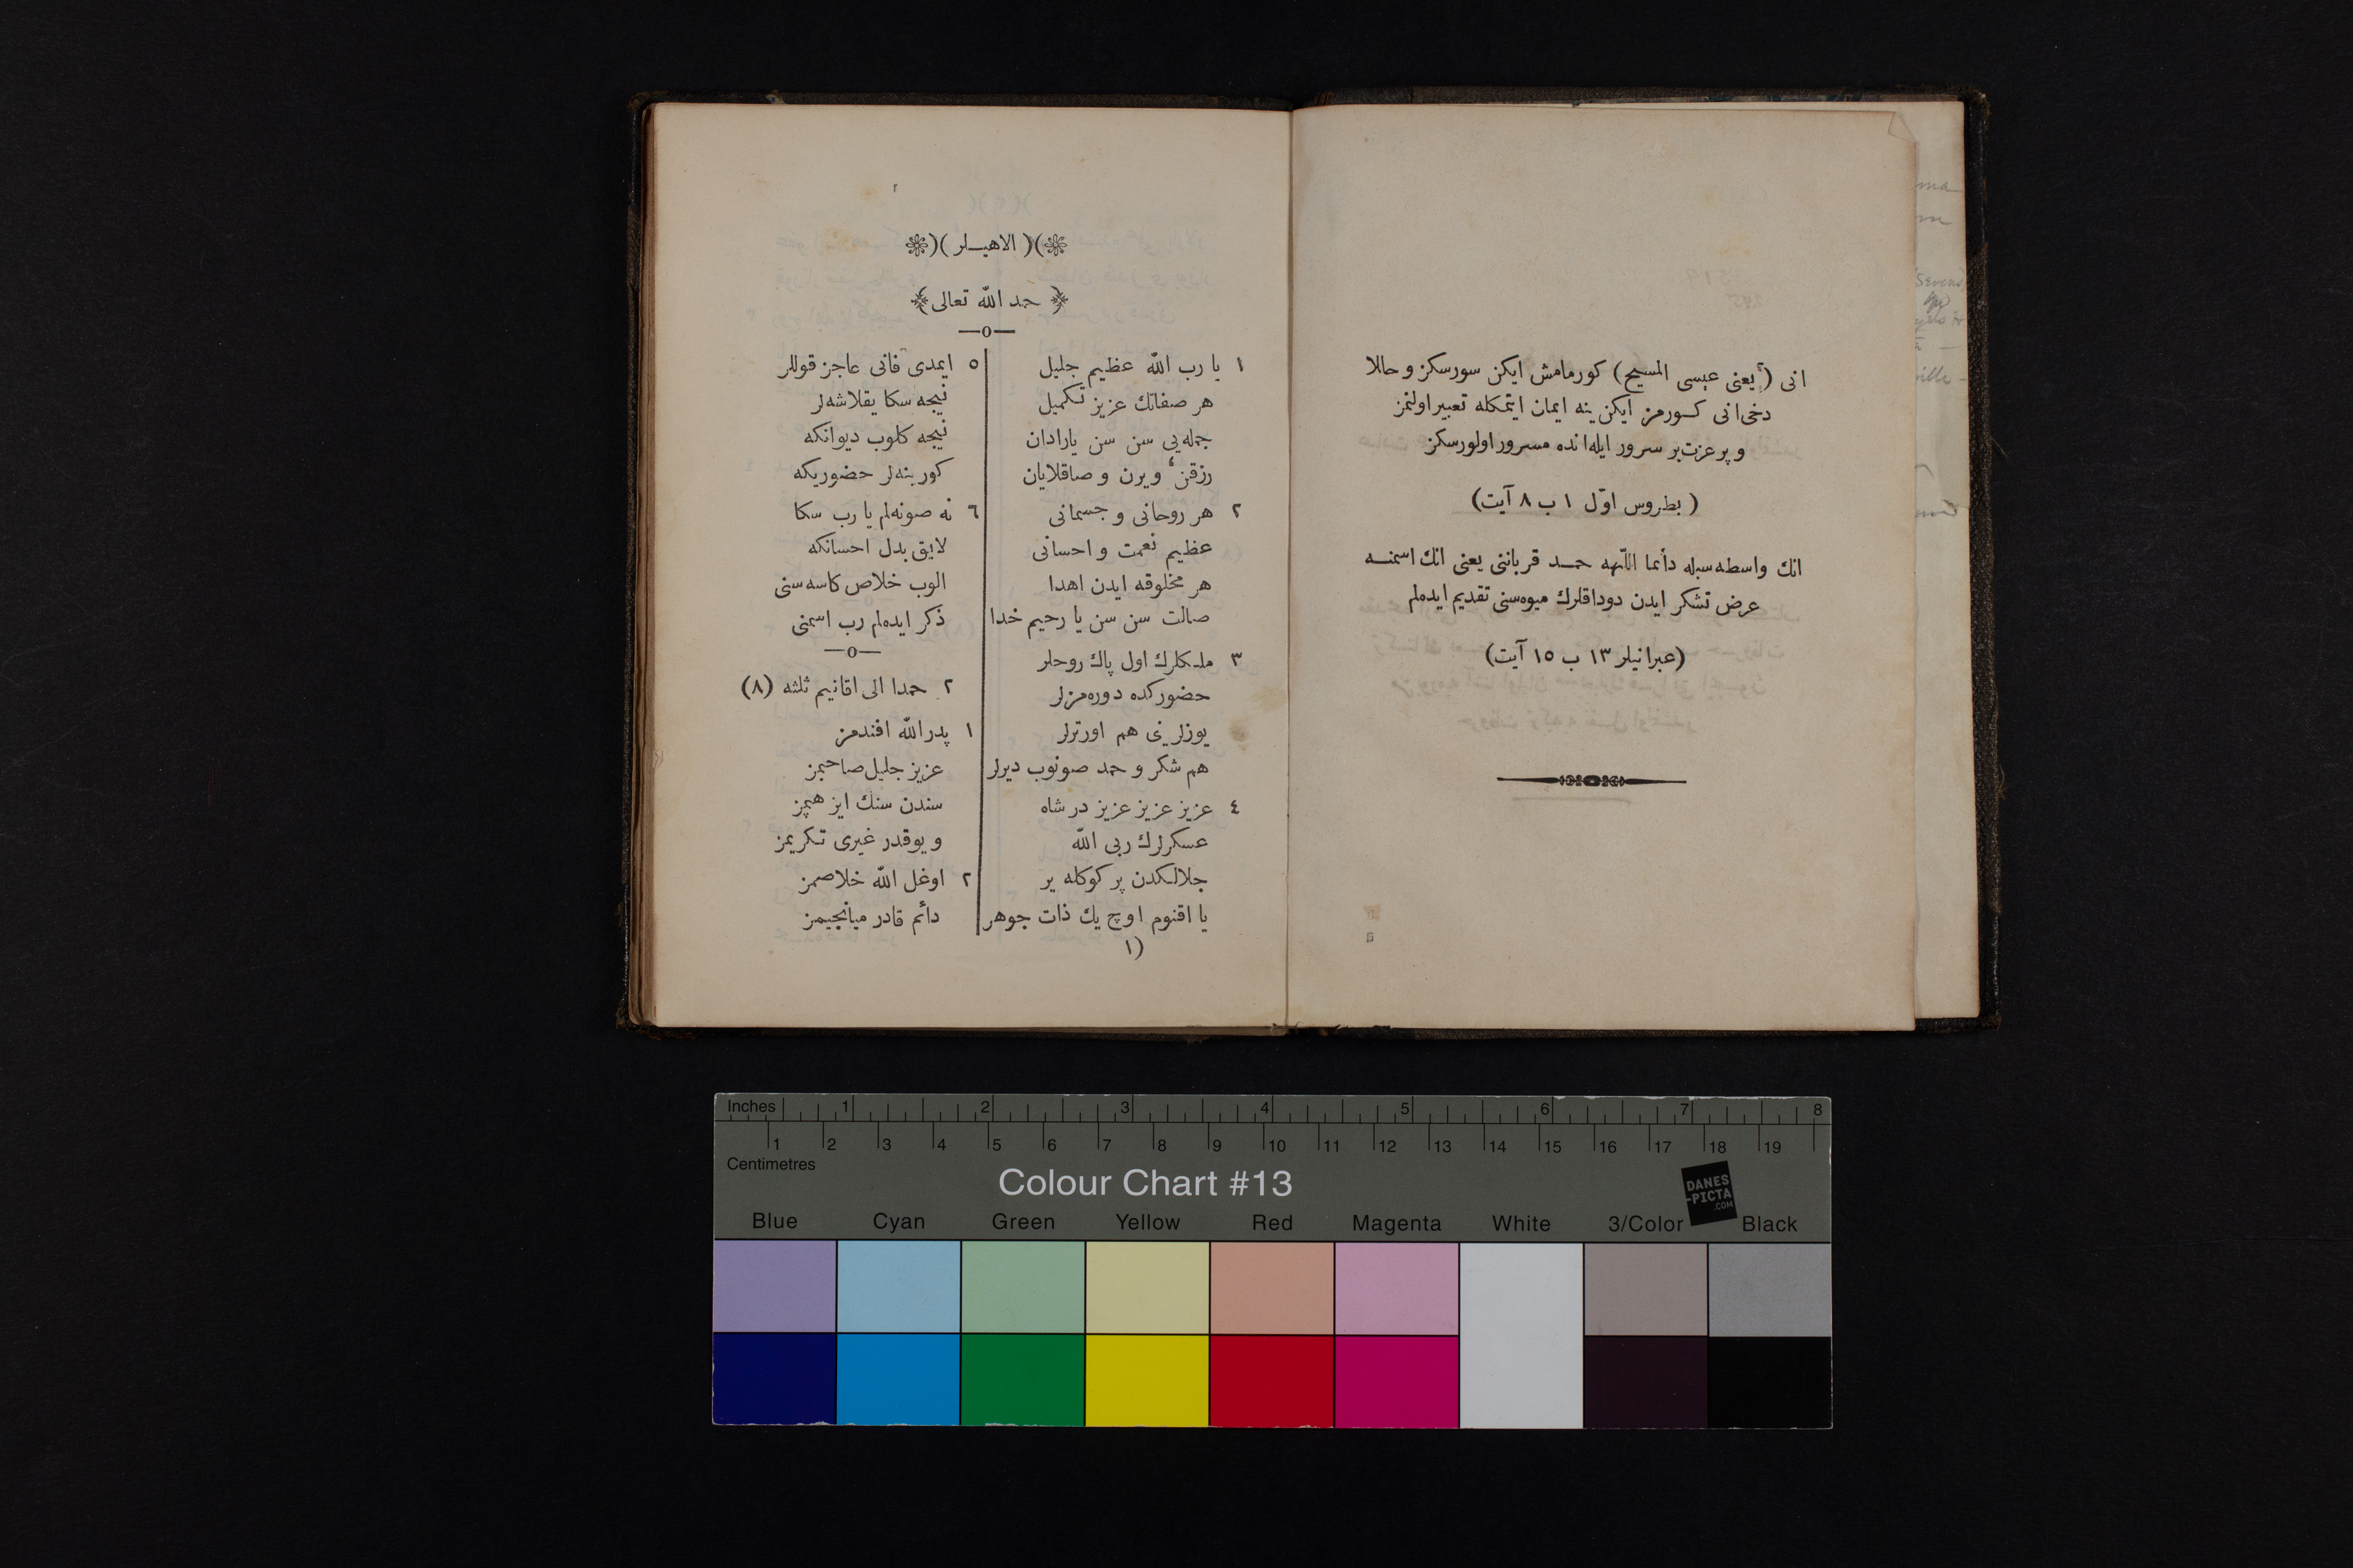 انى (يعنى عيسى المسيح) كورمامش ايكن سورسكز و حالا
دخى انى كورمز ايكن ينه ايمان ايتمكله تعبير اولنمز
و پر عزت بر سرور ايله انده مسرور اولورسكز
(بطروس اوّل ١ ب ٨ آيت)
انك واسطه سيله دأئما اللّهه حمد قرباننى يعنى انك اسمنه
عرض تشكر ايدن دوداقلرك ميوه سنى تقديم ايده لم
(عبرانيلر ١٣ ب ١٥ آيت)
١
)( الاهيلر )(
حمد اللّه تعالى
١ يا رب اللّه عظيم جليل
هر صفاتك عزيز تكميل
جمله يى سن سن يارادان
رزقن ويرن و صاقلايان
٢ هر روحانى و جسمانى
عظيم نعمت و احسانى
هر مخلوقه ايدن اهدا
صالت سن سن يا رحيم خدا
٣ ملكلرك اول پاك روحلر
حضوركده دوره مزلر
يوزلرينى هم اورترلر
هم شكر و حمد صونوب ديرلر
٤ عزيز عزيز عزيز در شاه
عسكرلرك ربى اللّه
جلالكدن پر كوكله ير
يا اقنوم اوچ يك ذات جوهر
٥ ايمدى فانى عاجز قوللر
نيجه سكا يقلاشه لر
نيجه كلوب ديوانكه
كورينه لر حضوريكه
٦ نه صونه لم يا رب سكا
لايق بدل احسانكه
الوب خلاص كاسه سنى
ذكر ايده لم رب اسمنى
٢ حمدا الى اقانيم ثلثه (٨)
١ پدر اللّه افندمز
عزيز جليل صاحبمز
سندن سنك ايز هپمز
و يوقدر غيرى تكريمز
٢ اوغل اللّه خلاصمز
دأئم قادر ميانجيمز
(١
Inches 1 2 3 4 5 6 7 8
1 2 3 4 5 6 7 8 9 10 11 12 13 14 15 16 17 18 19
Centimetres
Colour Chart #13
DANES
-PICTA
.COM
Blue Cyan Green Yellow Red Magenta White 3/Color Black